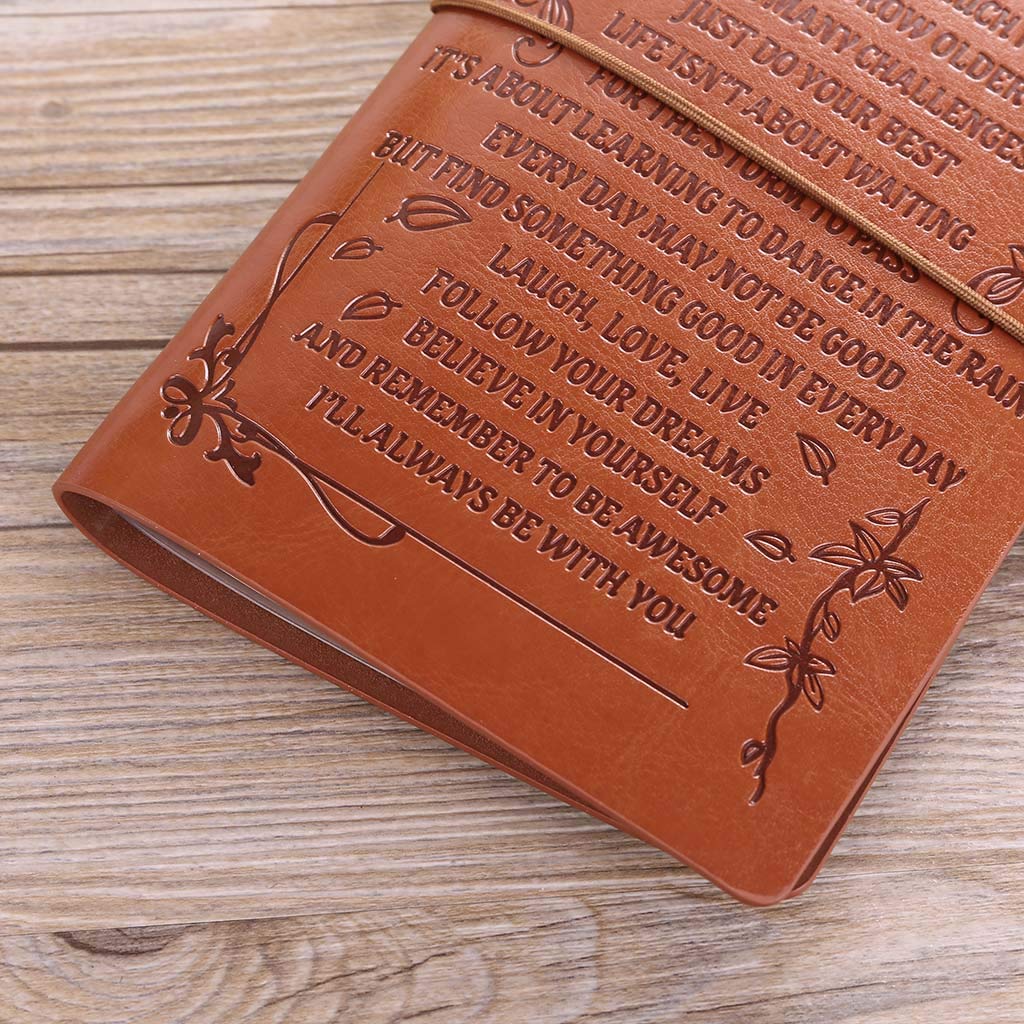 OW OLDER
MANY CHALLENGES
JUST DO YOUR BEST
LIFE ISN'T ABOUT WAITING
FOR THE STORM TO PASS
IT'S ABOUT LEARNING TO DANCE IN THE RAIN
EVERY DAY MAY NOT BE GOOD
BUT FIND SOMETHING GOOD IN EVERY DAY
LAUGH, LOVE, LIVE
FOLLOW YOUR DREAMS
BELIEVE IN YOURSELF
AND REMEMBER TO BE AWESOME
I'LL ALWAYS BE WITH YOU